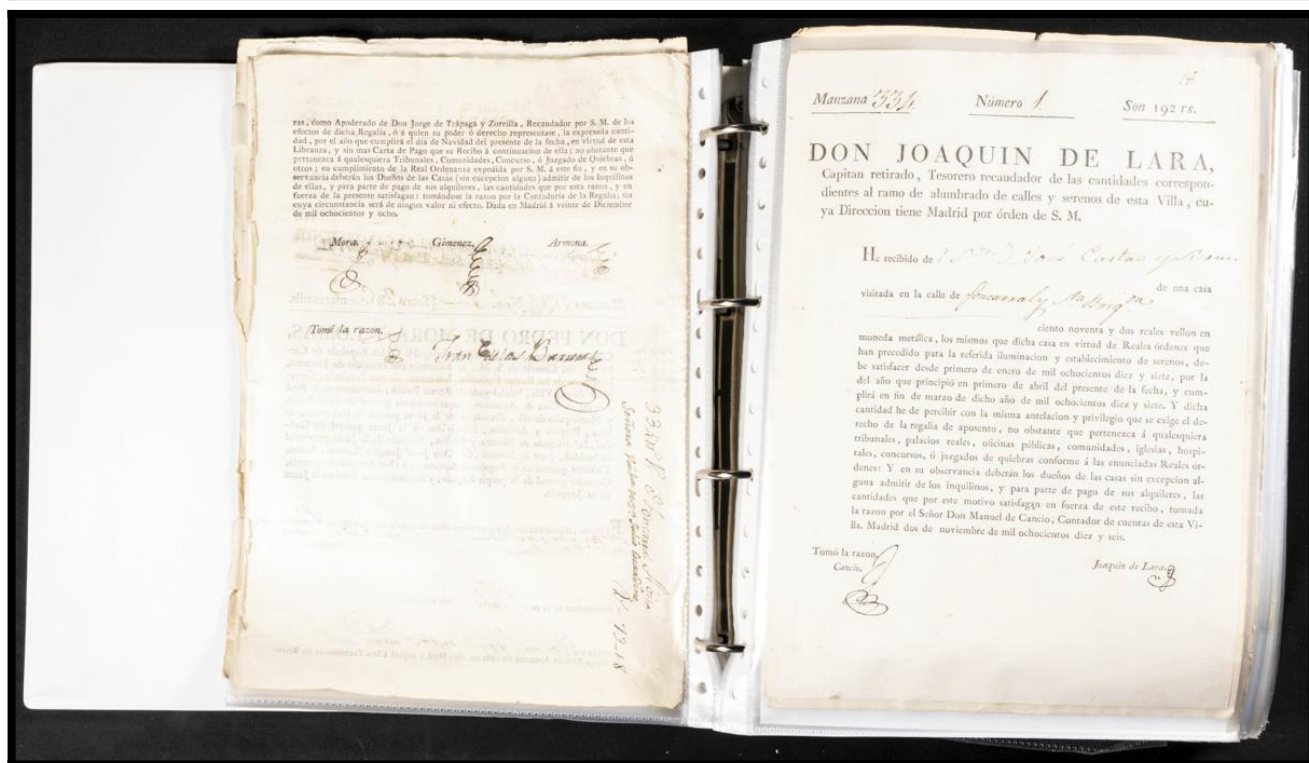 ras, como Apoderado de Don Jorge de Trápaga y Zorrilla, Recaudador por S. M. de los
efectos de dicha Regalía, ó á quien su poder ó derecho representase, la expresada canti-
dad, por el año que cumplirá el dia de Navidad del presente de la fecha, en virtud de esta
Libranza, y sin mas Carta de Pago que su Recibo á continuacion de ella; no obstante que
pertenezca á qualesquiera Tribunales, Comunidades, Concurso, ó Juzgado de Quiebras, ú
otros; en cumplimiento de la Real Ordenanza expedida por S. M. á este fin, y en su ob-
servancia deberán los Dueños de las Casas (sin excepcion alguna) admitir de los Inquilinos
de ellas, y para parte de pago de sus alquileres, las cantidades que por esta razon, y en
fuerza de la presente satisfagan: tomándose la razon por la Contaduría de la Regalía; sin
cuya circunstancia será de ningun valor ni efecto. Dada en Madrid á veinte de Diciembre
de mil ochocientos y ocho.
Mora. Gimenez. Armona.
Tomé la razon.
Manzana 334 Número 1 Son 192 rs.
DON JOAQUIN DE LARA,
Capitan retirado, Tesorero recaudador de las cantidades correspon-
dientes al ramo de alumbrado de calles y serenos de esta Villa, cu-
ya Direccion tiene Madrid por órden de S. M.
He recibido de José
de una casa
visitada en la calle de
ciento noventa y dos reales vellon en
moneda metálica, los mismos que dicha casa en virtud de Reales órdenes que
han precedido para la referida iluminacion y establecimiento de serenos, de-
be satisfacer desde primero de enero de mil ochocientos diez y siete, por la
del año que principió en primero de abril del presente de la fecha, y cum-
plirá en fin de marzo de dicho año de mil ochocientos diez y siete. Y dicha
cantidad he de percibir con la misma antelacion y privilegio que se exige el de-
recho de la regalía de aposento, no obstante que pertenezca á qualesquiera
tribunales, palacios reales, oficinas públicas, comunidades, iglesias, hospi-
tales, concursos, ó juzgados de quiebras conforme á las enunciadas Reales ór-
denes: Y en su observancia deberán los dueños de las casas sin excepcion al-
guna admitir de los inquilinos, y para parte de pago de sus alquileres, las
cantidades que por este motivo satisfagan en fuerza de este recibo, tomada
la razon por el Señor Don Manuel de Cancio, Contador de cuentas de esta Vi-
lla. Madrid dos de noviembre de mil ochocientos diez y seis.
Tomó la razon,
Cancio.
Joaquin de Lara.